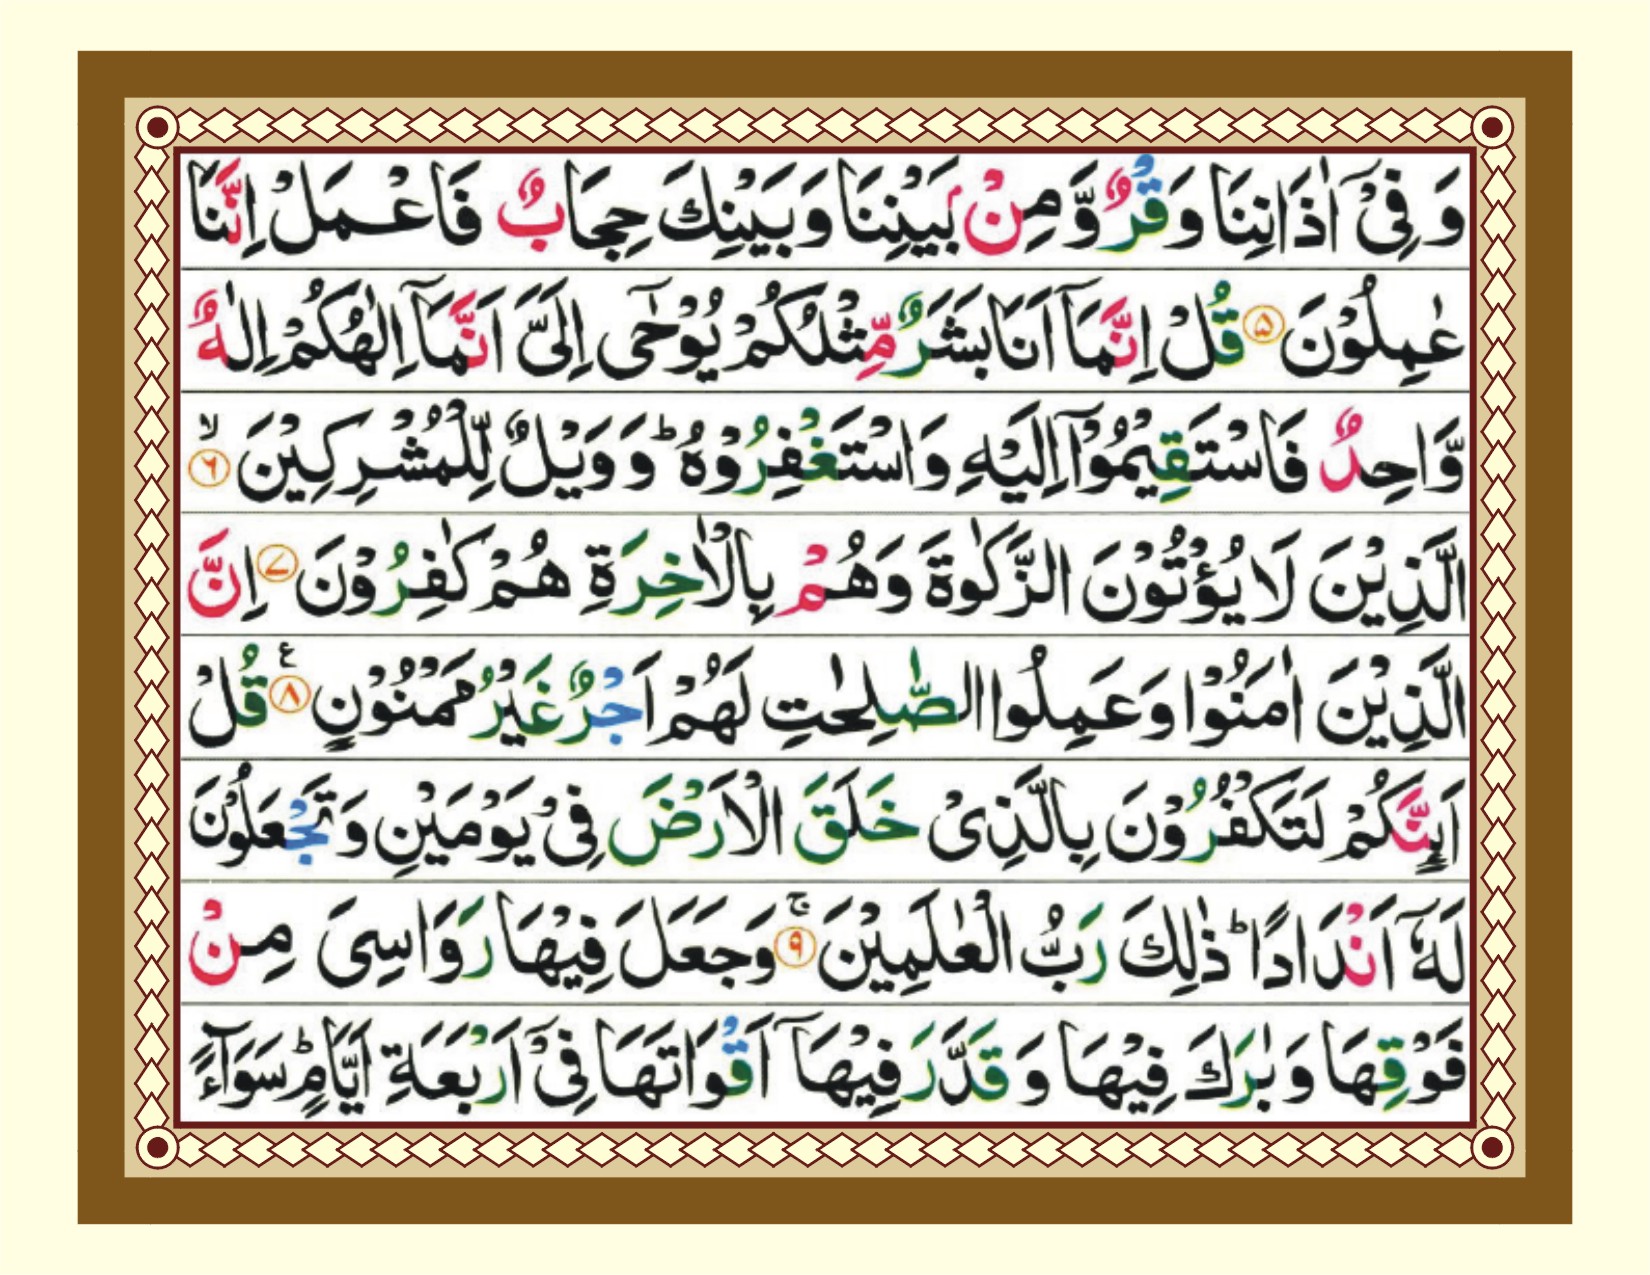 وَ فِیْۤ اٰذَانِنَا وَقْرٌ وَّ مِنْۢ بَیْنِنَا وَبَیْنِكَ حِجَابٌ فَاعْمَلْ اِنَّنَا
عٰمِلُوْنَ ۵ قُلْ اِنَّمَاۤ اَنَا بَشَرٌ مِّثْلُكُمْ یُوْحٰۤی اِلَیَّ اَنَّمَاۤ اِلٰهُكُمْ اِلٰهٌ
وَّاحِدٌ فَاسْتَقِیْمُوْۤا اِلَیْهِ وَاسْتَغْفِرُوْهُ ؕ وَوَیْلٌ لِّلْمُشْرِكِیْنَ ۙ ۶
الَّذِیْنَ لَا یُؤْتُوْنَ الزَّكٰوةَ وَهُمْ بِالْاٰخِرَةِ هُمْ كٰفِرُوْنَ ۷ اِنَّ
الَّذِیْنَ اٰمَنُوْا وَعَمِلُوا الصّٰلِحٰتِ لَهُمْ اَجْرٌ غَیْرُ مَمْنُوْنٍ ۸ ع قُلْ
اَىِٕنَّكُمْ لَتَكْفُرُوْنَ بِالَّذِیْ خَلَقَ الْاَرْضَ فِیْ یَوْمَیْنِ وَتَجْعَلُوْنَ
لَهٗۤ اَنْدَادًا ؕ ذٰلِكَ رَبُّ الْعٰلَمِیْنَ ۚ ۹ وَجَعَلَ فِیْهَا رَوَاسِیَ مِنْ
فَوْقِهَا وَبٰرَكَ فِیْهَا وَ قَدَّرَ فِیْهَاۤ اَقْوَاتَهَا فِیْۤ اَرْبَعَةِ اَیَّامٍ ؕ سَوَآءً